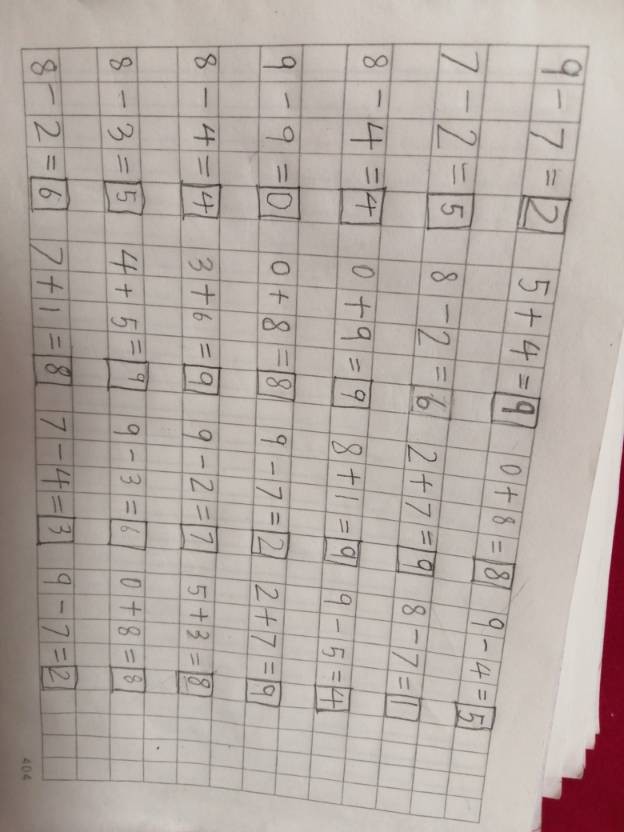 9-7=2 5+4=9 0+8=8 9-4=5
7-2=5 8-2=6 2+7=9 8-7=1
8-4=4 0+9=9 8+1=9 9-5=4
9-9=0 0+8=8 9-7=2 2+7=9
8-4=4 3+6=9 9-2=7 5+3=8
8-3=5 4+5=9 9-3=6 0+8=8
8-2=6 7+1=8 7-4=3 9-7=2
404